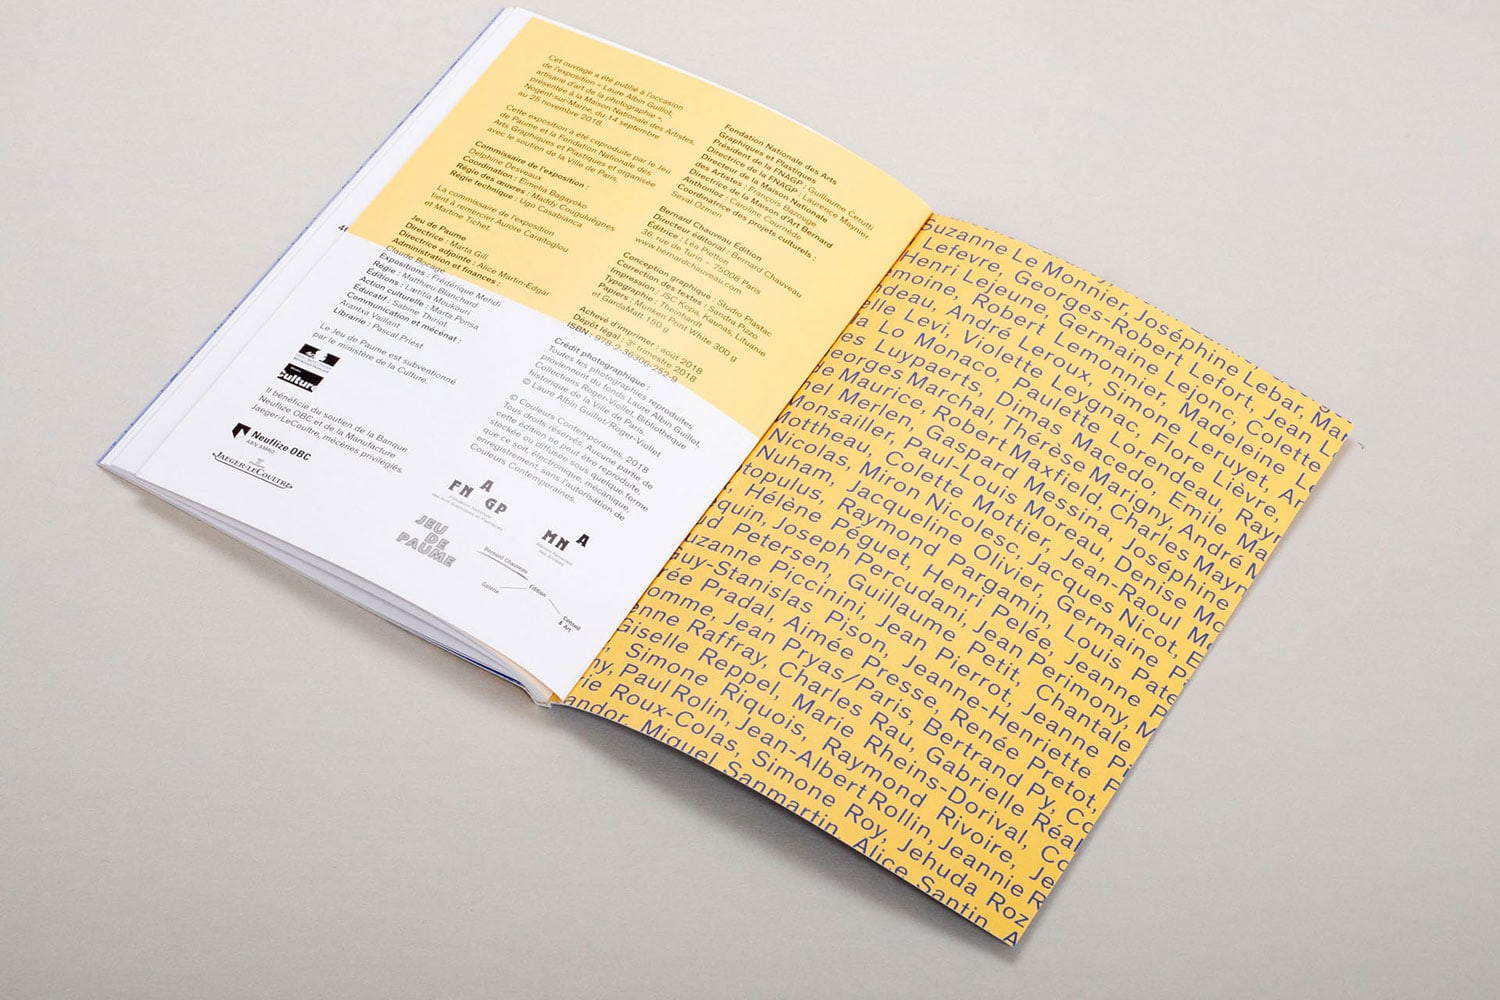 Cet ouvrage a été publié à l'occasion
de l'exposition « Laure Albin Guillot,
artisane d'art de la photographie »,
présentée à la Maison Nationale des Artistes,
Nogent-sur-Marne, du 14 septembre
au 25 novembre 2018.
Cette exposition a été coproduite par le Jeu
de Paume et la Fondation Nationale des
Arts Graphiques et Plastiques et organisée
avec le soutien de la Ville de Paris.
Commissaire de l'exposition :
Delphine Desveaux
Coordination : Eimelia Bagayoko
Régie des œuvres : Maddy Cougouluègnes
Régie technique : Ugo Casabianca
La commissaire de l'exposition
tient à remercier Aurore Caraïtoglou
et Martine Tichet.
Jeu de Paume
Directrice : Marta Gili
Directrice adjointe : Alice Martin-Edgar
Administration et finances :
Claude Bocage
Expositions : Frédérique Mehdi
Régie : Matthieu Blanchard
Éditions : Lætitia Moukouri
Action culturelle : Marta Ponsa
Éducatif : Sabine Thiriot
Communication et mécénat :
Arantxa Vaillant
Librairie : Pascal Priest
Le Jeu de Paume est subventionné
par le ministère de la Culture.
Culture
Il bénéficie du soutien de la Banque
Neuflize OBC et de la Manufacture
Jaeger-LeCoultre, mécènes privilégiés.
Neuflize OBC
ABN AMRO
JAEGER-LECOULTRE
Fondation Nationale des Arts
Graphiques et Plastiques
Président de la FNAGP : Guillaume Cerutti
Directrice de la FNAGP : Laurence Maynier
Directeur de la Maison Nationale
des Artistes : François Bazouge
Directrice de la Maison d'Art Bernard
Anthonioz : Caroline Cournède
Coordinatrice des projets culturels :
Seval Özmen
Bernard Chauveau Édition
Directeur éditorial : Bernard Chauveau
Éditrice : Léa Pietton
36, rue de Turin – 75008 Paris
www.bernardchauveau.com
Conception graphique : Studio Plastac
Correction des textes : Sandra Pizzo
Impression : JSC Kopa, Kaunas, Lituanie
Typographie : Theinhardt
Papiers : Munken Print White 300 g
et GardaMatt 150 g
Achevé d'imprimer : août 2018
Dépôt légal : 3e trimestre 2018
ISBN : 978-2-36306-252-9
Crédit photographique :
Toutes les photographies reproduites
proviennent du fonds Laure Albin Guillot,
Collections Roger-Viollet, Bibliothèque
historique de la Ville de Paris.
© Laure Albin Guillot/Roger-Viollet
© Couleurs Contemporaines, 2018
Tous droits réservés. Aucune partie de
cette édition ne peut être reproduite,
stockée ou diffusée sous quelque forme
que ce soit, électronique, mécanique,
enregistrement, sans l'autorisation de
Couleurs Contemporaines.
FN A GP
Fondation Nationale
des Arts Graphiques et Plastiques
JEU
DE
PAUME
MN A
Maison Nationale
des Artistes
Bernard Chauveau
Édition
Galerie
Conseil
& Art
Suzanne Le Monnier, Joséphine Lebar, Mar
Lefevre, Georges-Robert Lefort, Jean L
Henri Lejeune, Germaine Lejonc, Colette
moine, Robert Lemonnier, Madeleine L
deau, André Leroux, Simone Leruyet, Ar
elle Levi, Violette Leygnac, Flore Lièvre,
a Lo Monaco, Paulette Lorendeau, Ray
es Luypaerts, Dimas Macedo, Emile Ma
eorges Marchal, Thérèse Marigny, André M
e Maurice, Robert Maxfield, Charles Mayn
nel Merlen, Gaspard Messina, Joséphine
Monsailler, Paul-Louis Moreau, Denise Mo
Mottheau, Colette Mottier, Jean-Raoul M
Nicolas, Miron Nicolesc, Jacques Nicot,
Nuham, Jacqueline Olivier, Germaine P
topulus, Raymond Pargamin, Louis Pate
, Hélène Péguet, Henri Pelée, Jeanne P
quin, Joseph Percudani, Jean Perimony, M
ud Petersen, Guillaume Petit, Chantale
uzanne Piccinini, Jean Pierrot, Jeanne Pi
Guy-Stanislas Pison, Jeanne-Henriette F
ée Pradal, Aimée Presse, Renée Pretot,
omme, Jean Pryas/Paris, Bertrand Py, Co
enne Raffray, Charles Rau, Gabrielle Réa
Giselle Reppel, Marie Rheins-Dorival, Co
, Simone Riquois, Raymond Rivoire, Je
ny, Paul Rolin, Jean-Albert Rollin, Jeannie R
ie Roux-Colas, Simone Roy, Jehuda Roz
andor, Miguel Sanmartin, Alice Santin, A